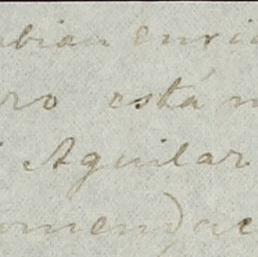 bian enri
ro está
Aguilar
omendac